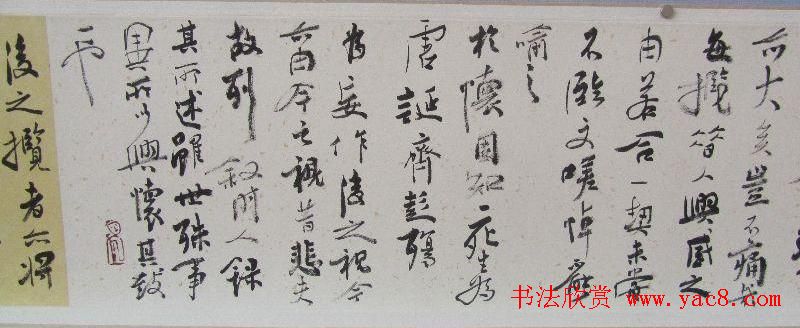 亦大矣豈不痛哉
每攬昔人興感之
由若合一契未嘗
不臨文嗟悼不能
喻之
於懷固知一死生為
虛誕齊彭殤
為妄作後之視今
亦由今之視昔悲夫
故列敘時人錄
其所述雖世殊事
異所以興懷其致
一也
後之攬者亦將
书法欣赏 www.yac8.com